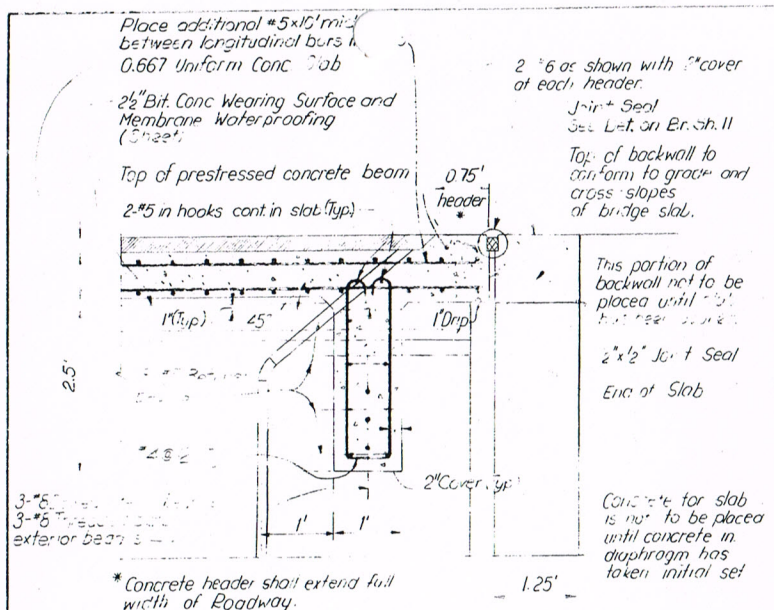 Place additional #5x10' mid
between longitudinal bars
0.667 Uniform Conc Slab
2½" Bit. Conc Wearing Surface and
Membrane Waterproofing
(Sheet)
Top of prestressed concrete beam
2-#5 in hooks cont. in slab (Typ.)
0.75'
header
*
2 #6 as shown with cover
at each header.
Joint Seal
See Det. on Br. Sh. 11
Top of backwall to
conform to grade and
cross slopes
of bridge slab.
This portion of
backwall not to be
placed until
2"x½" Joint Seal
End of Slab
1"(Typ)
45°
1" Drip
2.5'
2" Cover (Typ)
3-#8
3-#8
exterior beams
1'
1'
Concrete for slab
is not to be placed
until concrete in
diaphragm has
taken initial set
1.25'
* Concrete header shall extend full
width of Roadway.